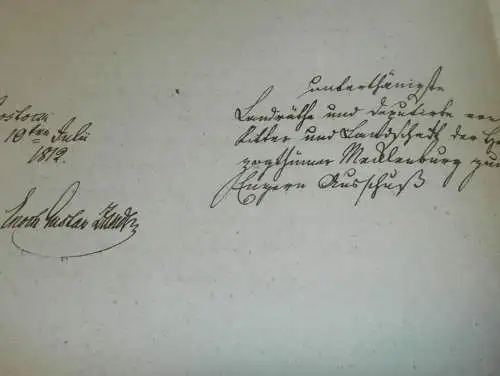 Rostock
19ten Julii
1812.
unterthänigste
Landräthe und Deputirte von
Ritter und Landschaft der Her
zogthümer Mecklenburg zum
Engern Ausschuß